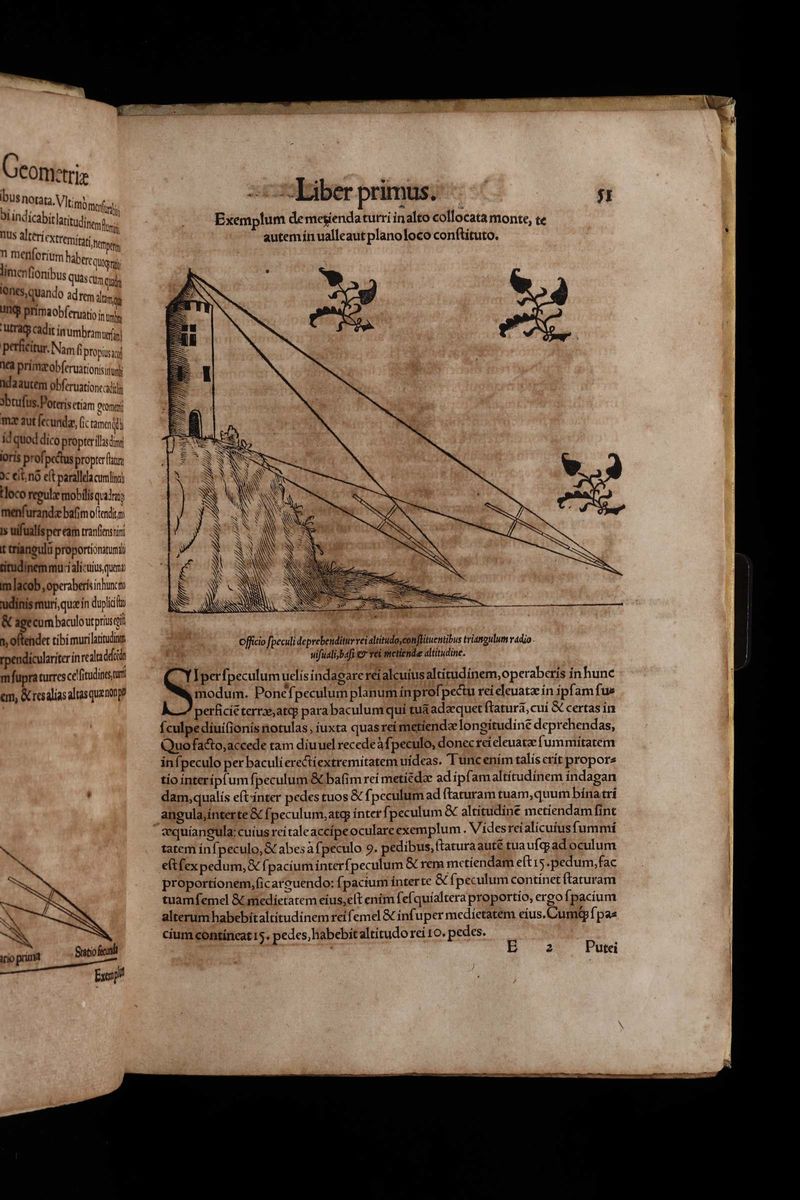 Geometriæ
ibus notata. Vltimò
bi indicabit latitudinem
nus alteri extremitati,
n mensorium habere
dimensionibus quas cum
iones, quando ad rem
unq; prima obseruatio in
utraq; cadit in umbram
perficitur. Nam si propius
nea primæ obseruationis
nda autem obseruatione
obtusus. Poteris etiam
imæ aut secundæ, sic tamen
id quod dico propter illas
ioris prospectus propter
oc est, nõ est parallela cum
loco regulæ mobilis
mensurandæ basim ostendit
is uisualis per eam transiens
t triangulũ proportionatum
titudinem muri alicuius, quem
im Iacob, operaberis in hunc
udinis muri, quæ in duplici
& age cum baculo ut prius
n, ostendet tibi muri latitudinem
rpendiculariter in re alta
m supra turres celsitudines,
em, & res alias altas quæ non
atio prima Statio secunda
Liber primus. 51
Exemplum de metienda turri in alto collocata monte, te
autem in ualle aut plano loco constituto.
Officio speculi deprehenditur rei altitudo, constituentibus triangulum radio
uisuali, basi & rei metiendæ altitudine.
SI per speculum uelis indagare rei alcuius altitudinem, operaberis in hunc
modum. Pone speculum planum in prospectu rei eleuatæ in ipsam su-
perficiẽ terræ, atq; para baculum qui tuã adæquet staturã, cui & certas in
sculpe diuisionis notulas, iuxta quas rei metiendæ longitudinẽ deprehendas,
Quo facto, accede tam diu uel recede à speculo, donec rei eleuatæ summitatem
in speculo per baculi erecti extremitatem uideas. Tunc enim talis erit propor-
tio inter ipsum speculum & basim rei metiẽdæ ad ipsam altitudinem indagan
dam, qualis est inter pedes tuos & speculum ad staturam tuam, quum bina tri
angula, inter te & speculum, atq; inter speculum & altitudinẽ metiendam sint
æquiangula: cuius rei tale accipe oculare exemplum. Vides rei alicuius summi
tatem in speculo, & abes à speculo 9. pedibus, statura autẽ tua usq; ad oculum
est sex pedum, & spacium inter speculum & rem metiendam est 15. pedum, fac
proportionem, sic arguendo: spacium inter te & speculum continet staturam
tuam semel & medietatem eius, est enim sesquialtera proportio, ergo spacium
alterum habebit altitudinem rei semel & insuper medietatem eius. Cumq; spa-
cium contineat 15. pedes, habebit altitudo rei 10. pedes.
E 2 Putei